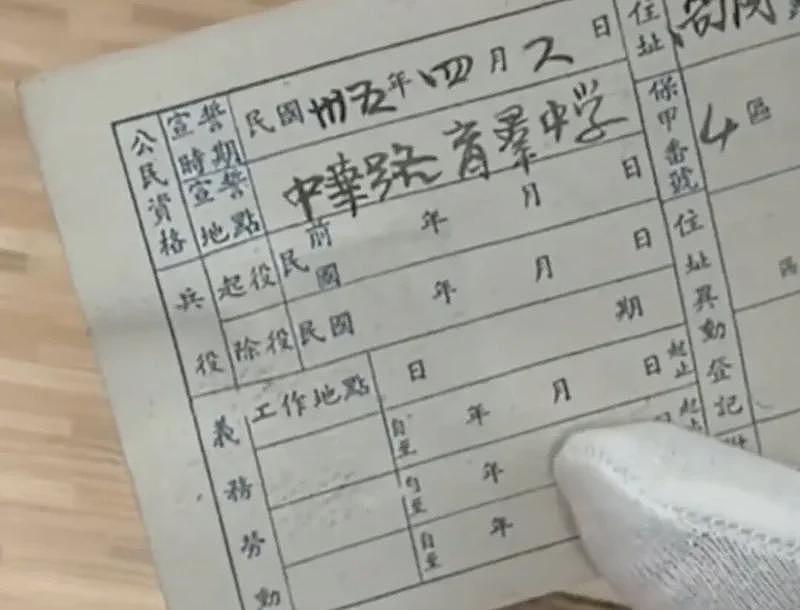 公民資格
宣誓時期 民國卅五年四月 日
宣誓地點 中華路育群中学
兵役
起役 民前國 年 月 日
除役 民國 年 月 日
義務勞動
工作地點 日 期
自至 年 月 日 起止
自至 年 起
自至 年
住址
保甲番號 4區
住址異動登記
區